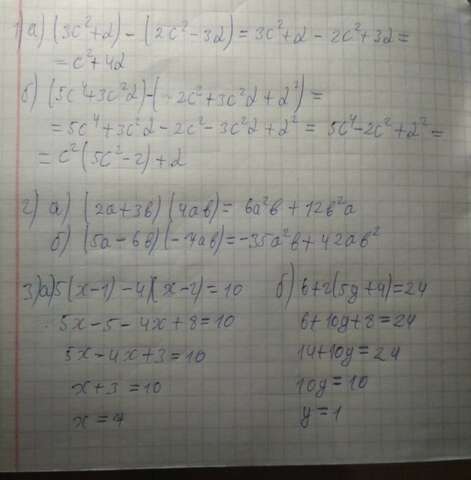 1) а) (3c²+d) - (2c²-3d) = 3c²+d - 2c²+3d =
= c²+4d
б) (5c⁴+3c²d)-(-2c²+3c²d+d²) =
= 5c⁴+3c²d-2c²-3c²d+d² = 5c⁴-2c²+d² =
= c²(5c²-2)+d
2) а) (2a+3b)(4ab) = 6a²b + 12b²a
б) (5a-6b)(-7ab) = -35a²b + 42ab²
3) а) 5(x-1)-4(x-2)=10
5x-5-4x+8=10
5x-4x+3=10
x+3=10
x=7
б) 6+2(5y+4)=24
6+10y+8=24
14+10y=24
10y=10
y=1